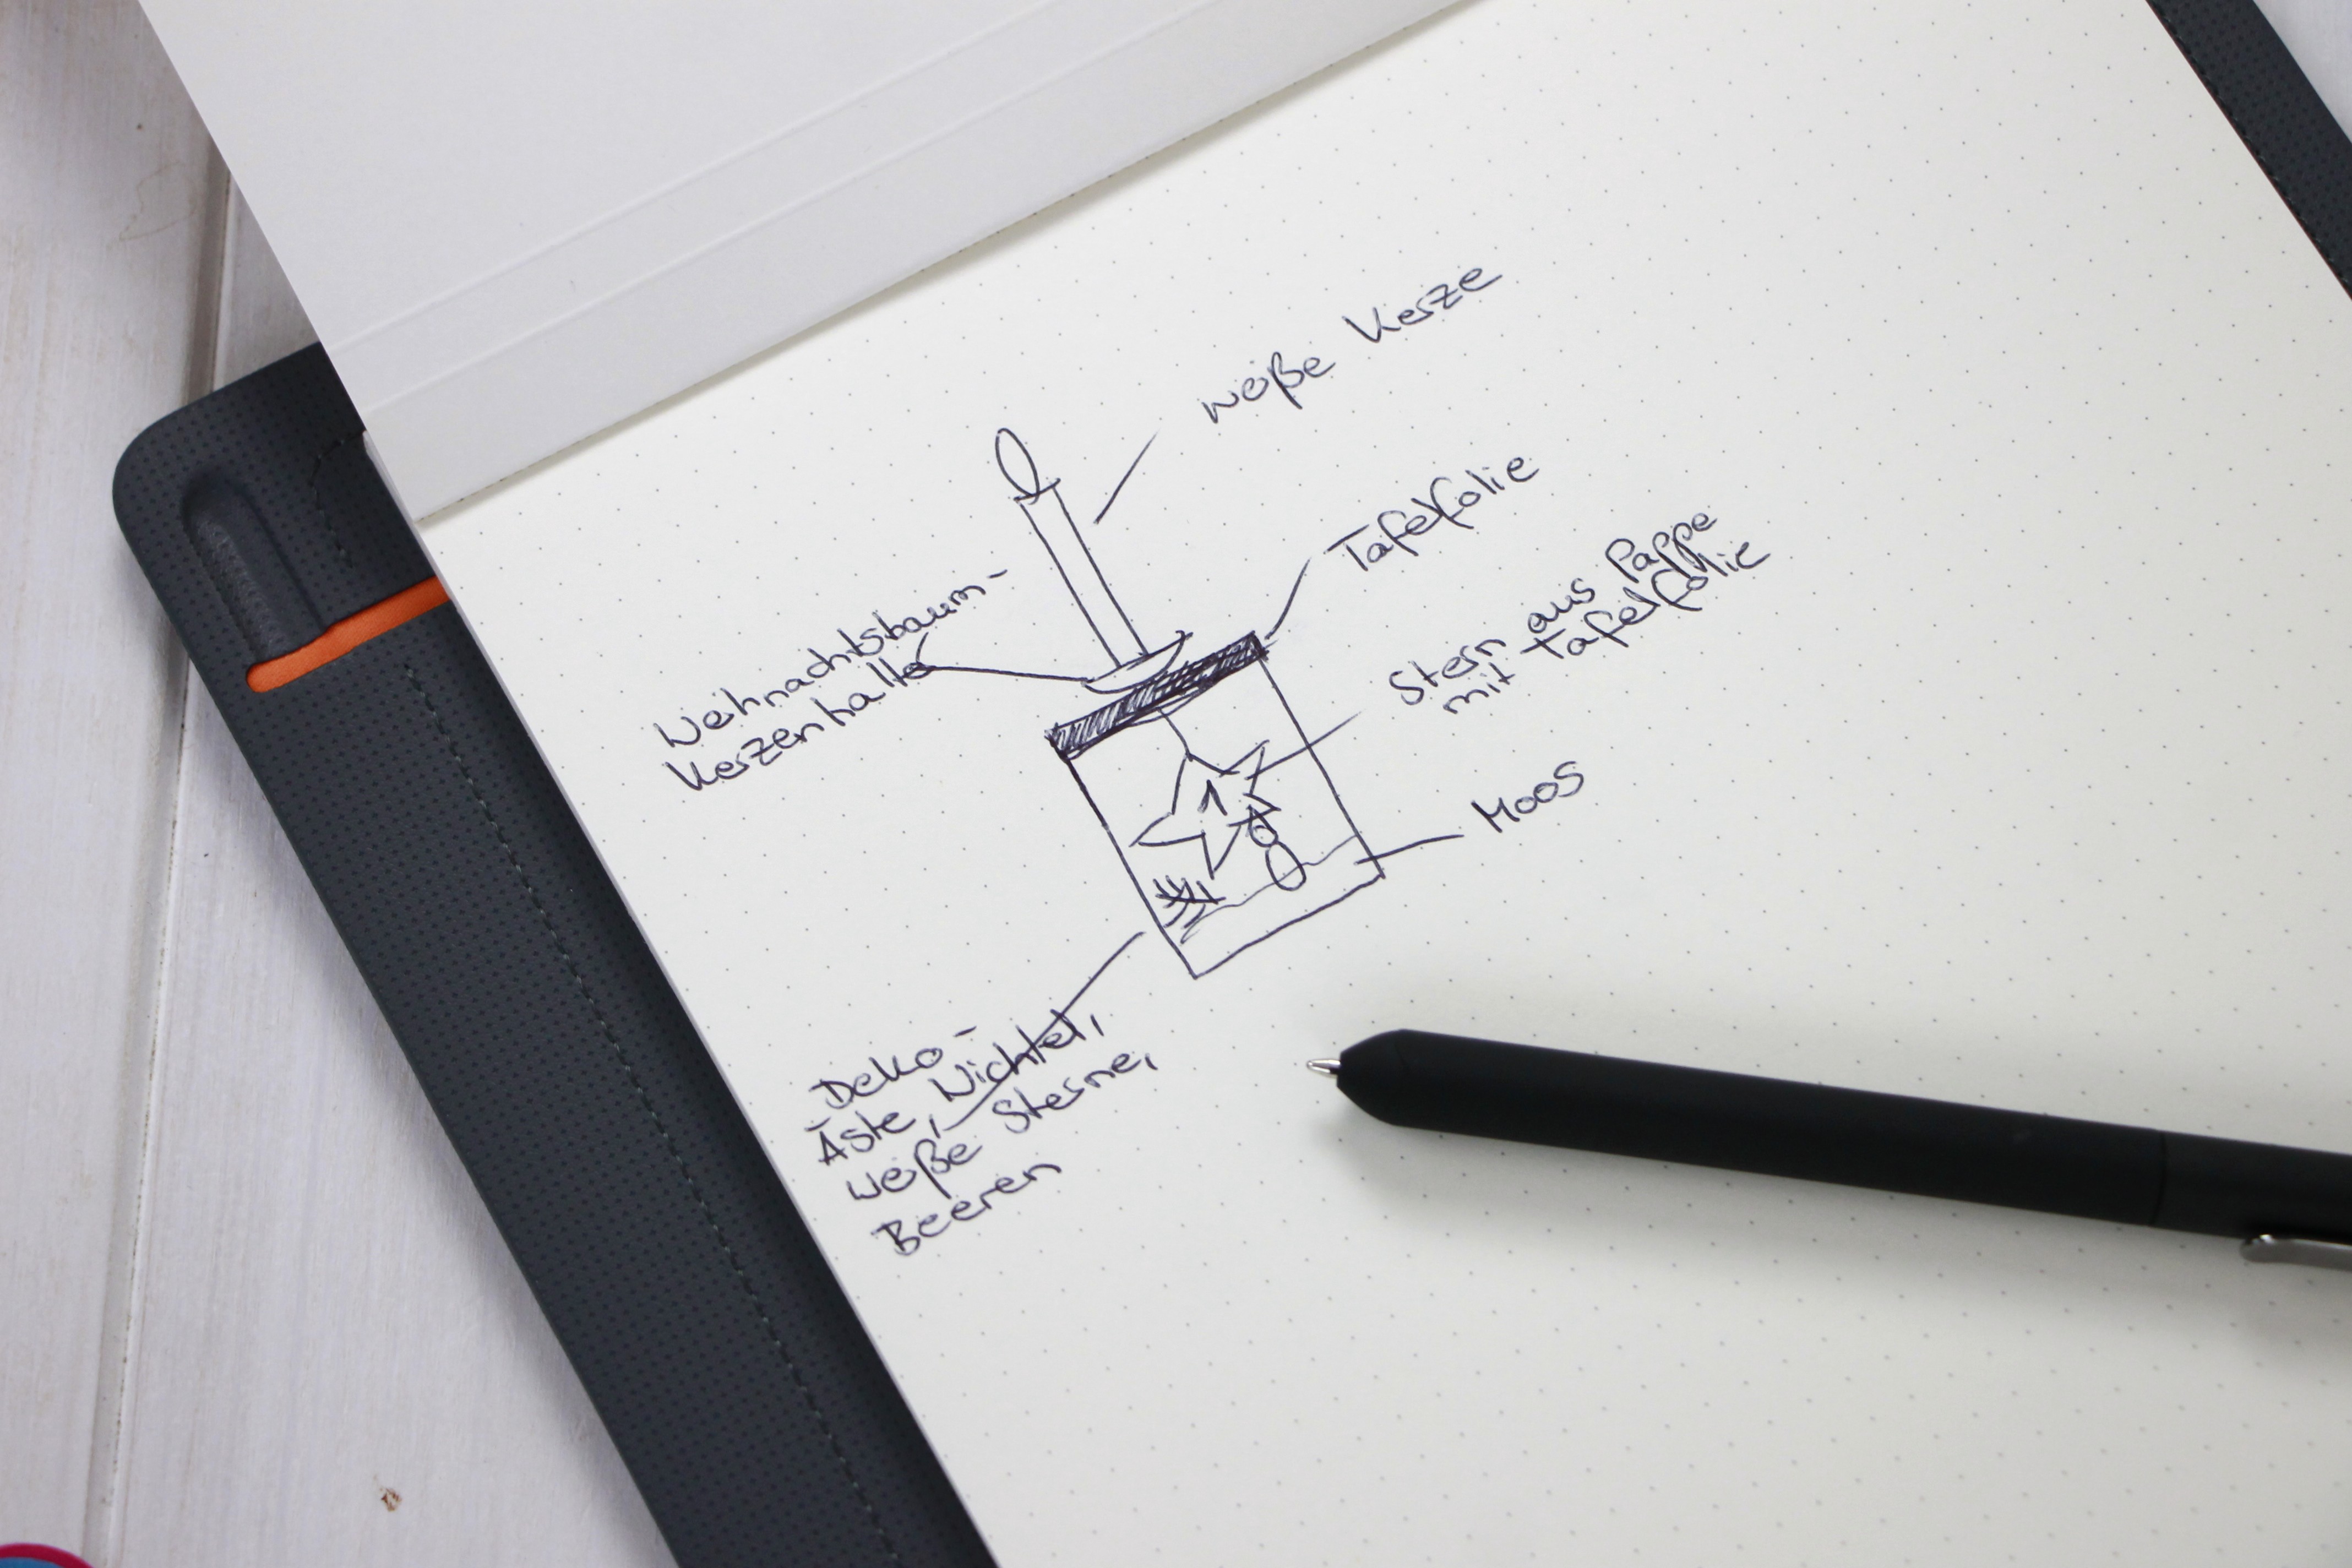 weiße Kerze
Tafelfolie
Weihnachtsbaum-
Kerzenhalte
Stern aus Pappe
mit Tafelfolie
1
Moos
Deko-
Äste, Wichtel,
weiße Sterne,
Beeren